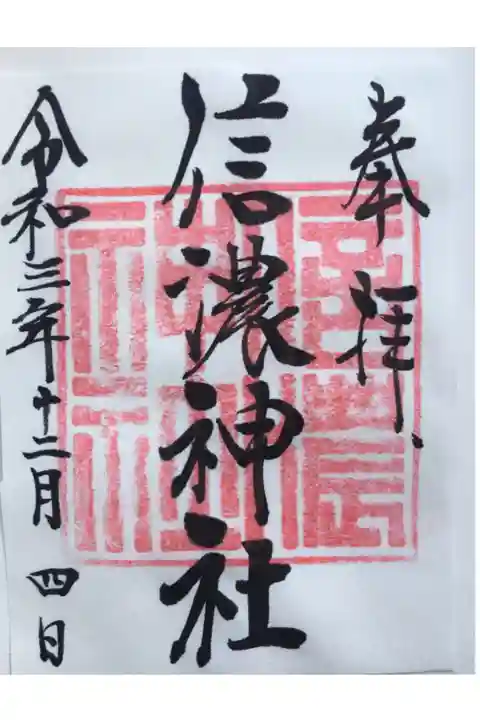 奉拝
信濃神社
令和三年十二月四日